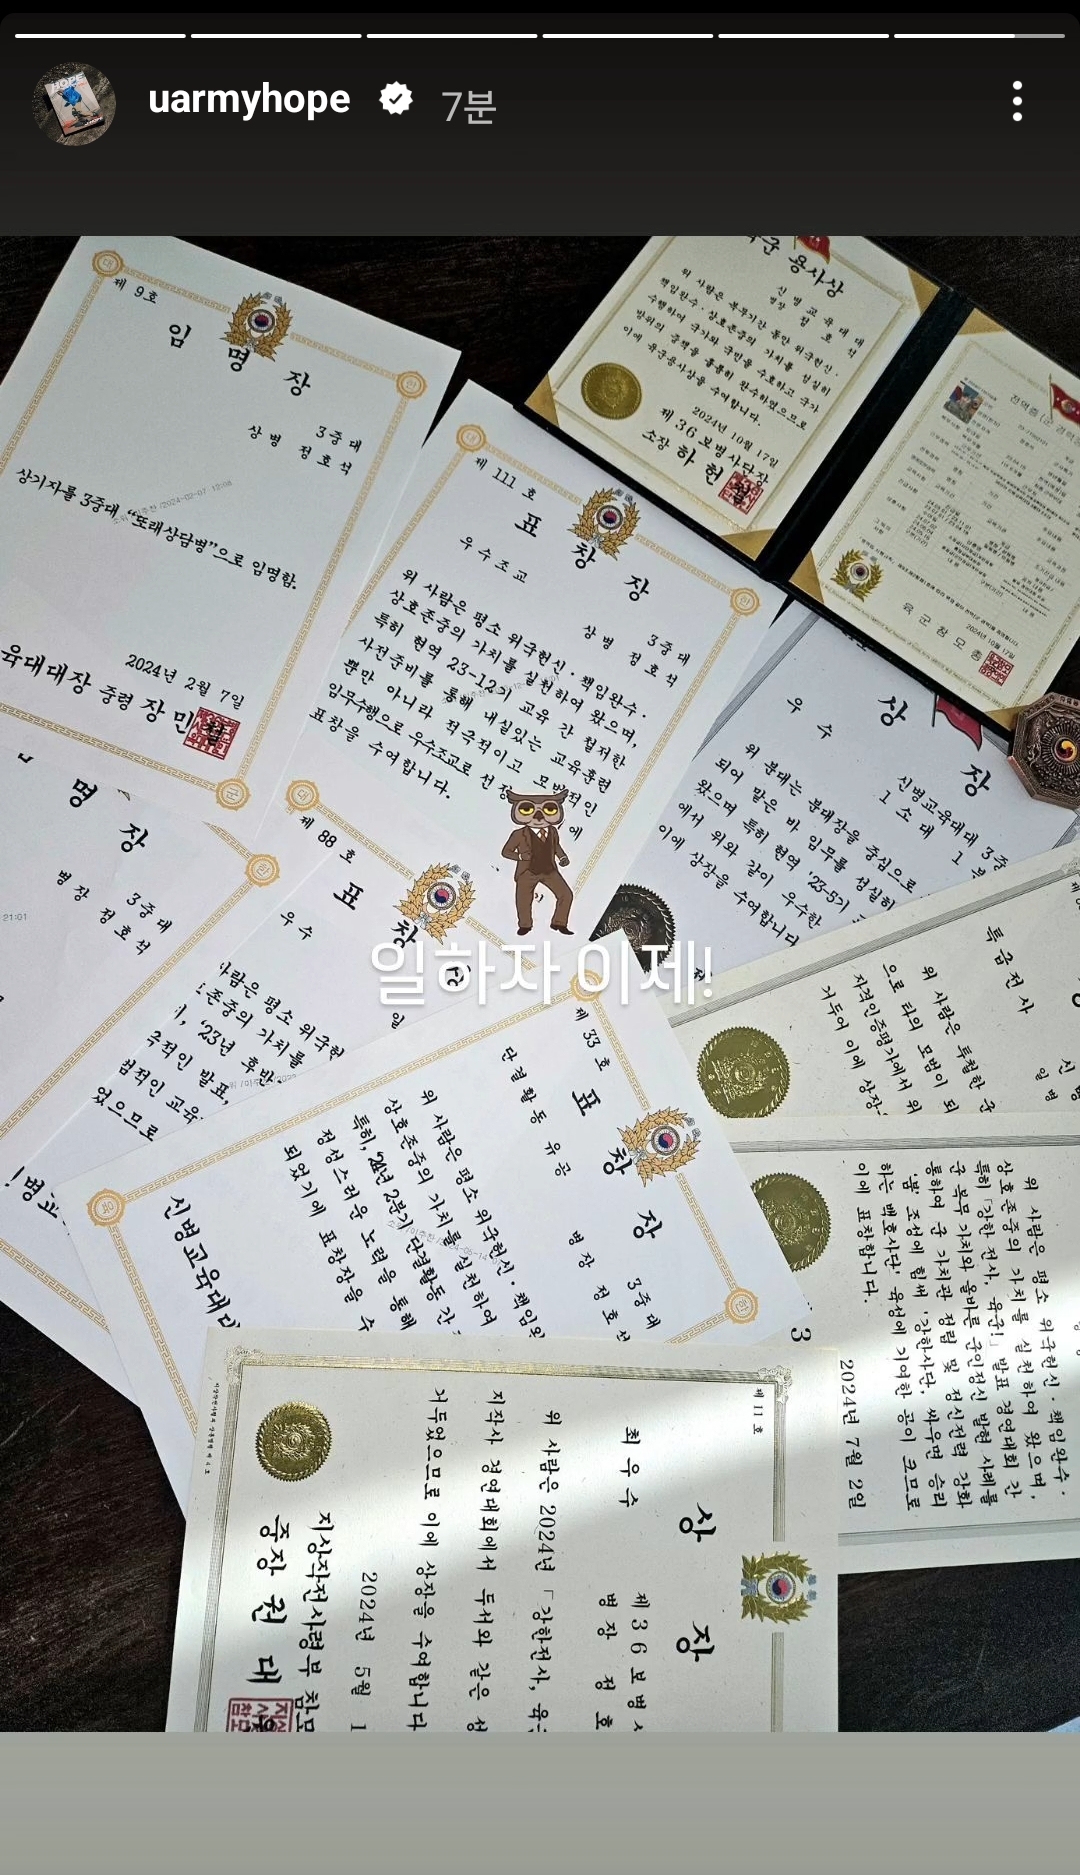 uarmyhope 7분
제 9호
임 명 장
3중대
상병 정호석
상기자를 3중대 "또래상담병"으로 임명함.
2024년 2월 7일
육대대장 중령 장 민
육군 용사상
신병교육대대
병장 정호석
위 사람은 복무기간 동안 위국헌신·
책임완수·상호존중의 가치를 성실히
수행하여 국가와 국민을 수호하고 국가
방위의 중책을 훌륭히 완수하였으므로
이에 육군용사상을 수여합니다.
2024년 10월 17일
제36보병사단장
소장 하 헌
2024년 10월 17일
육군참모총
제 111 호
표 창 장
우수조교
3중대
상병 정호석
위 사람은 평소 위국헌신·책임완수·
상호존중의 가치를 실천하여 왔으며,
특히 현역 23-12기 교육 간 철저한
사전준비를 통해 내실있는 교육훈련
뿐만 아니라 적극적이고 모범적인
임무수행으로 우수조교로 선정
에
표창을 수여합니다.
상 장
우 수
신병교육대대 3중
1 소 대 1
위 분대는 분대장을 중심으로
되어 맡은 바 임무를 성실히
왔으며 특히 현역 '23-5기
에서 위와 같이 우수한
이에 상장을 수여합니다
명 장
3중대
병장 정호석
21:01
제 88 호
표 창
우수
사람은 평소 위국헌
존중의 가치를
'23년 후반
추적인 발표,
범적인 교육
었으므로
일하자 이제!
특급전사
위 사람은 투철한 군
으로 타의 모범이 되
자격인증평가에서 위
거두어 이에 상장
제 33 호
표 창 장
단결활동 유공
3중대
병장 정호석
위 사람은 평소 위국헌신·책임완
상호존중의 가치를 실천하여
특히, 24년 2분기 단결활동 간
정성스러운 노력을 통해
되었기에 표창장을 수
신병교육대대
위 사람은 평소 위국헌신·책임완수·
상호존중의 가치를 실천하여 왔으며,
특히 「강한 전사, 육군!」 발표 경연대회 간
군 복무 가치와 올바른 군인정신 발현 사례를
통하여 군 가치관 정립 및 정신전력 강화
'붐' 조성에 힘써 '강한사단, 싸우면 승리
하는 백호사단' 육성에 기여한 공이 크므로
이에 표창합니다.
2024년 7월 2일
제 11 호
상 장
최우수
제36보병사
병장 정호
위 사람은 2024년 「강한전사, 육
지작사 경연대회에서 두서와 같은 성
거두었으므로 이에 상장을 수여합니다
2024년 5월 1
지상작전사령부 참모
중장 권 대